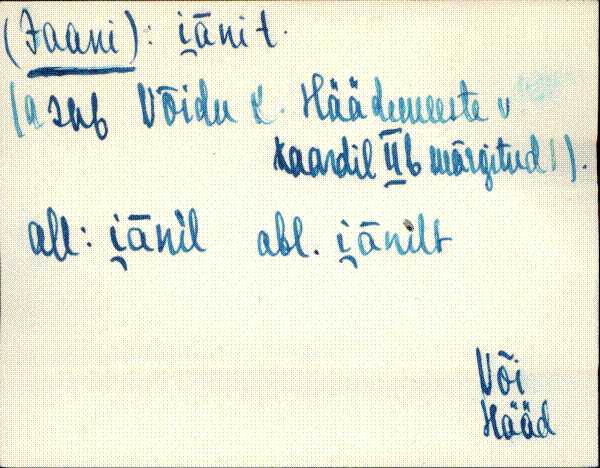 (Jaani): i̯āni t.
(asub Võidu k. Häädemeeste v
kaardil IIb märgitud 1).
all: i̯āni̬l abl. i̯ānilt
Või
Hääd